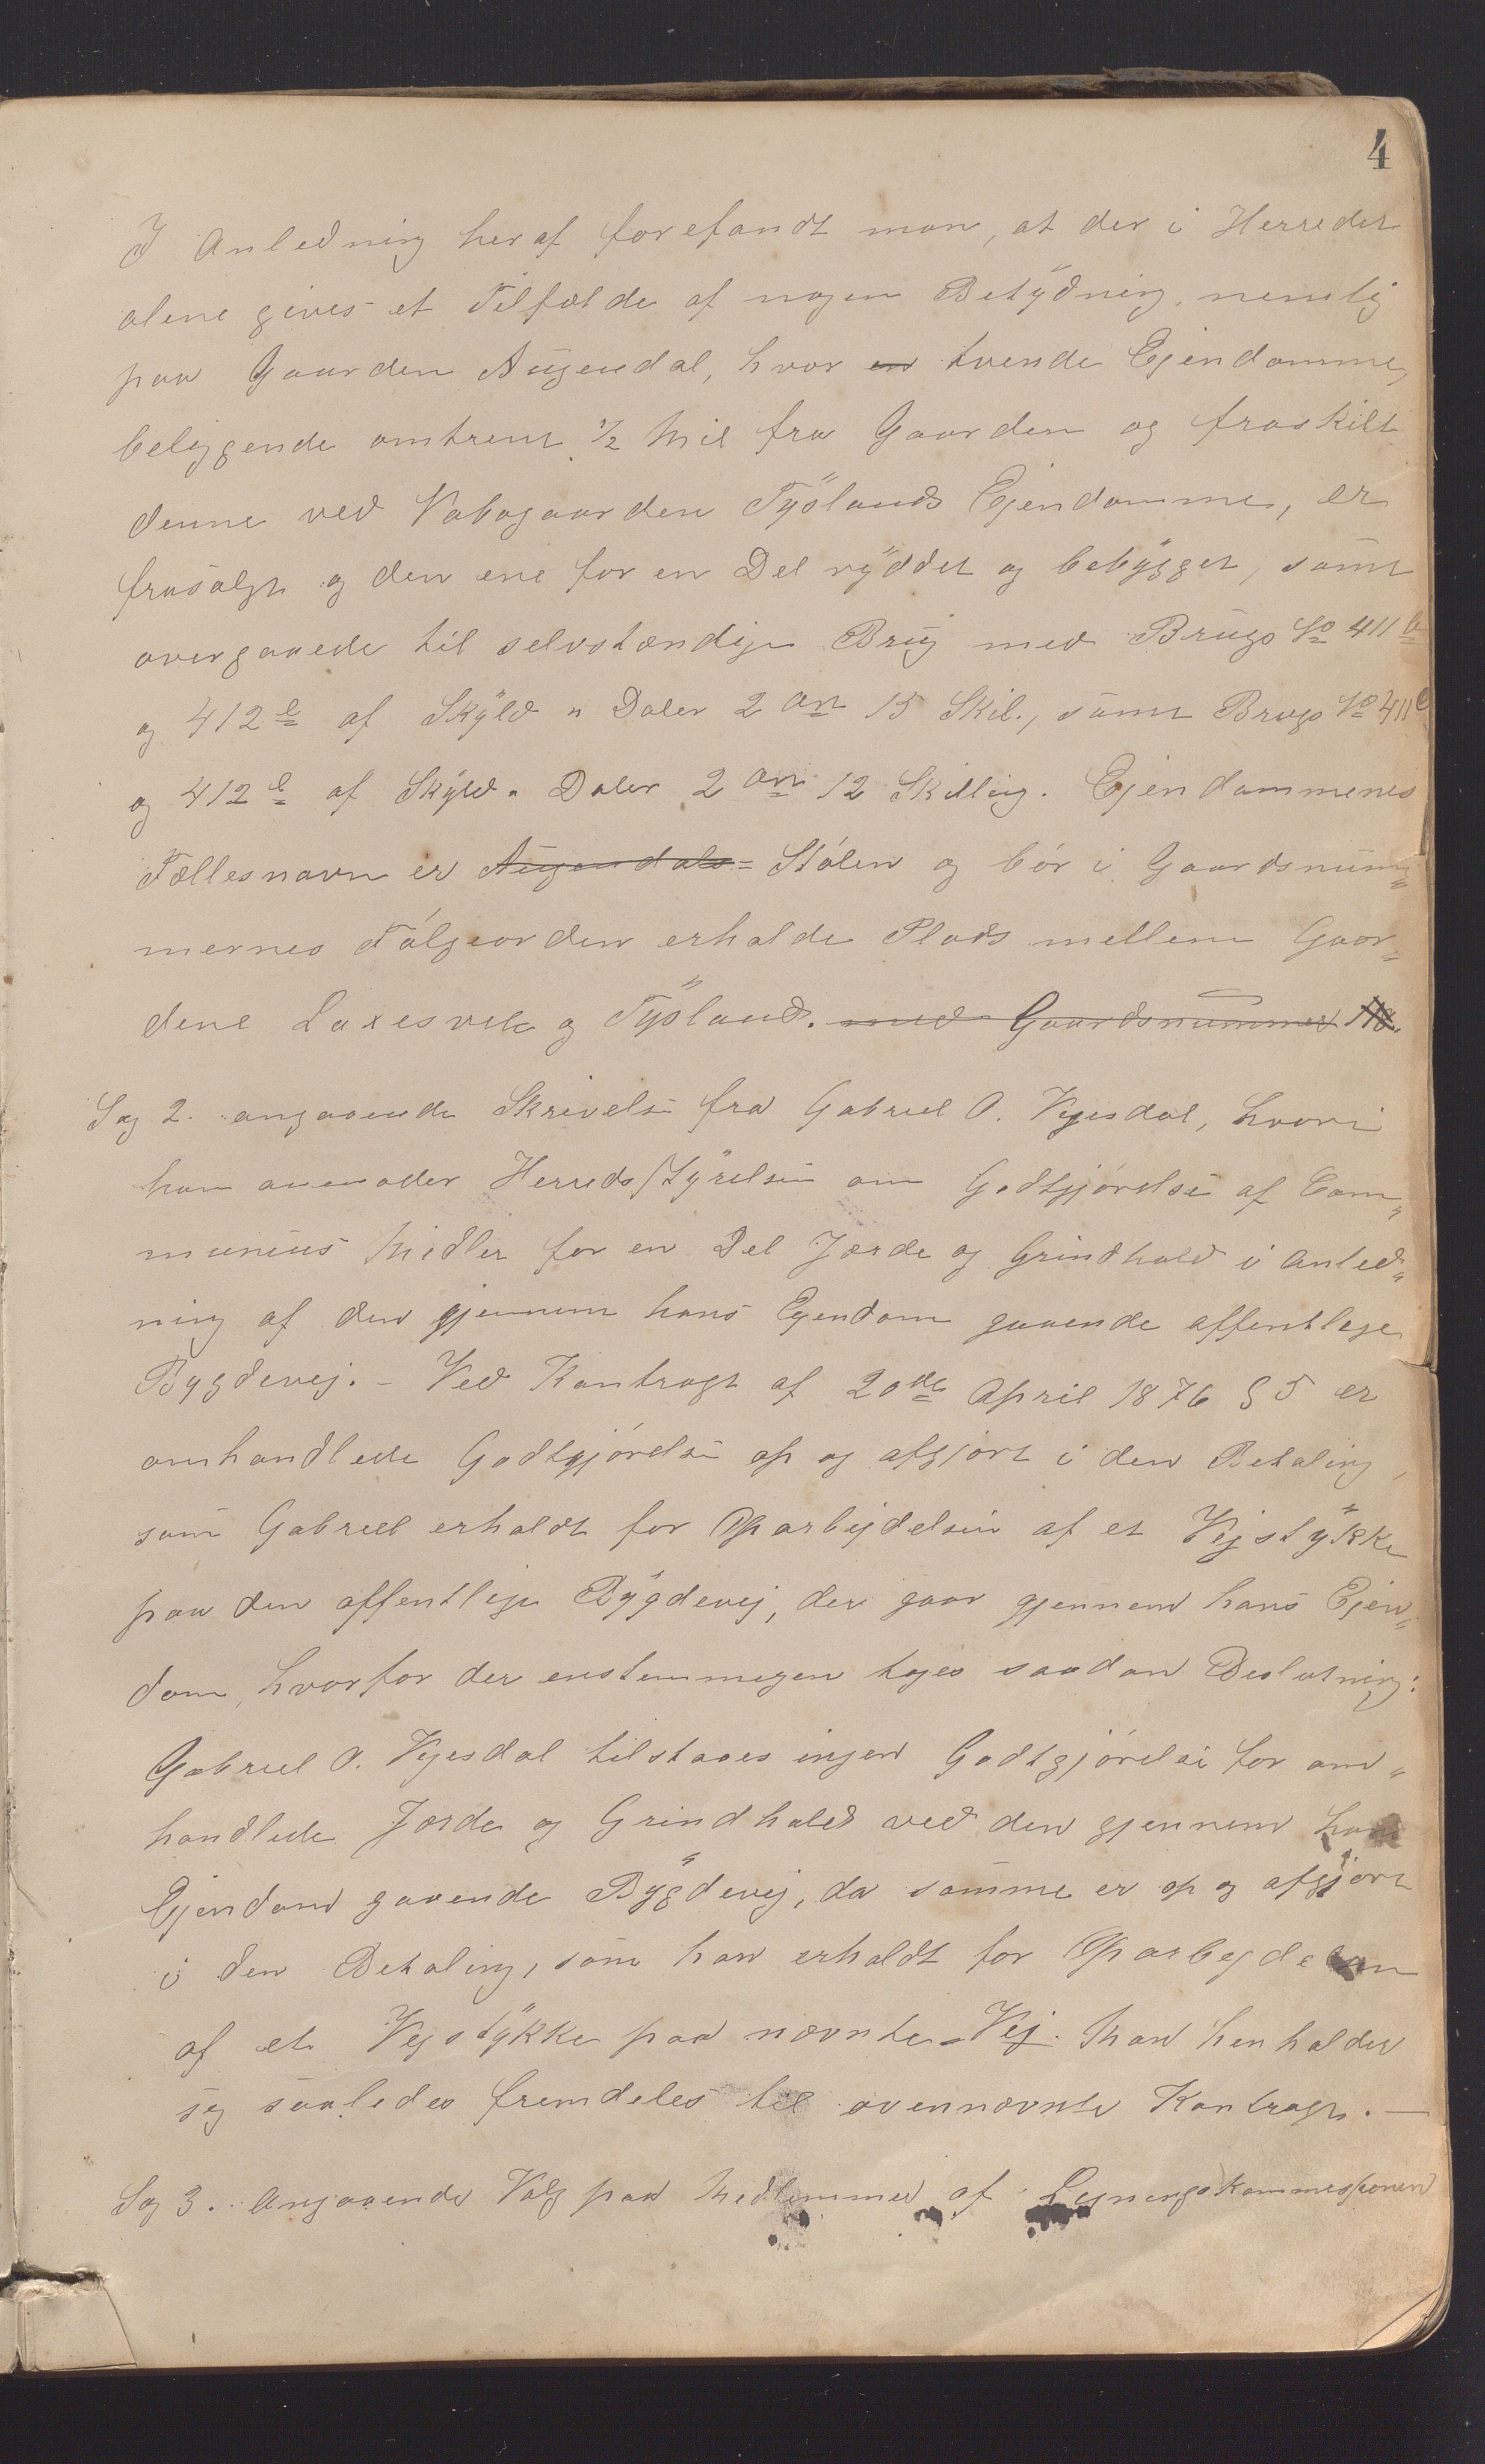 4
I Anledning heraf forefandt man, at der i Herredet
alene gives et Tilfælde af nogen Betÿdning, nemlig
paa Gaarden Augendal, hvor en tvende Ejendomme,
beliggende omtrent 1/2 Mil fra Gaarden og fraskilt
denne ved Nabogaarden Tÿslands Ejendomme, er
frasolgt og den ene for en Del rÿddet og bebÿgget, samt
overgaaede til selvstændige Brug med Brugs No 411 b
og 412 b af Skÿld " Daler 2 Ort 15 Skil., samt Brugs No 411 c
og 412 c af Skÿld " Daler 2 Ort 12 Skilling. Ejendommenes
Fællesnavn er Augendals= Stólen og bór i Gaardsnum„
mernes Fólgeorden erholde Plads mellem Gaar„
dene Laxesvele og Tÿsland. med Gaardsnummer 118.
Sag 2. angaaende Skrivelse fra Gabriel O. Vejesdal, hvori
han anmoder Herredsstÿrelsen om Godtgjórelse af Com„
munens Midler for en Del Jærde og Grindhold i Anled„
ning af den gjennem hans Ejendom gaaende offentlige
Bygdevej. – Ved Kontragt af 20de April 1876 § 5 er
omhandlede Godtgjórelse op og afgjort i den Betaling,
som Gabriel erholdt for Oparbejdelsen af et Vejstÿkke
paa den offentlige Bÿgdevej, der gaar gjennem hans Ejen„
dom, hvorfor der enstemmigen toges saadan Beslutning:
Gabriel O. Vejesdal tilstaaes ingen Godtgjórelse for om„
handlede Jærde og Grindhold ved den gjennem hans
Ejendom gaaende Bÿgdevej, da samme er op og afgjort
i den Betaling, som han erholdt for Oparbejdelsen
af et Vejstÿkke paa nævnte Vej. Man henholder
sig saaledes fremdeles til ovennævnte Kontragt. —
Sag 3. Angaaende Valg paa Medlemmer af Ligningskommissionen